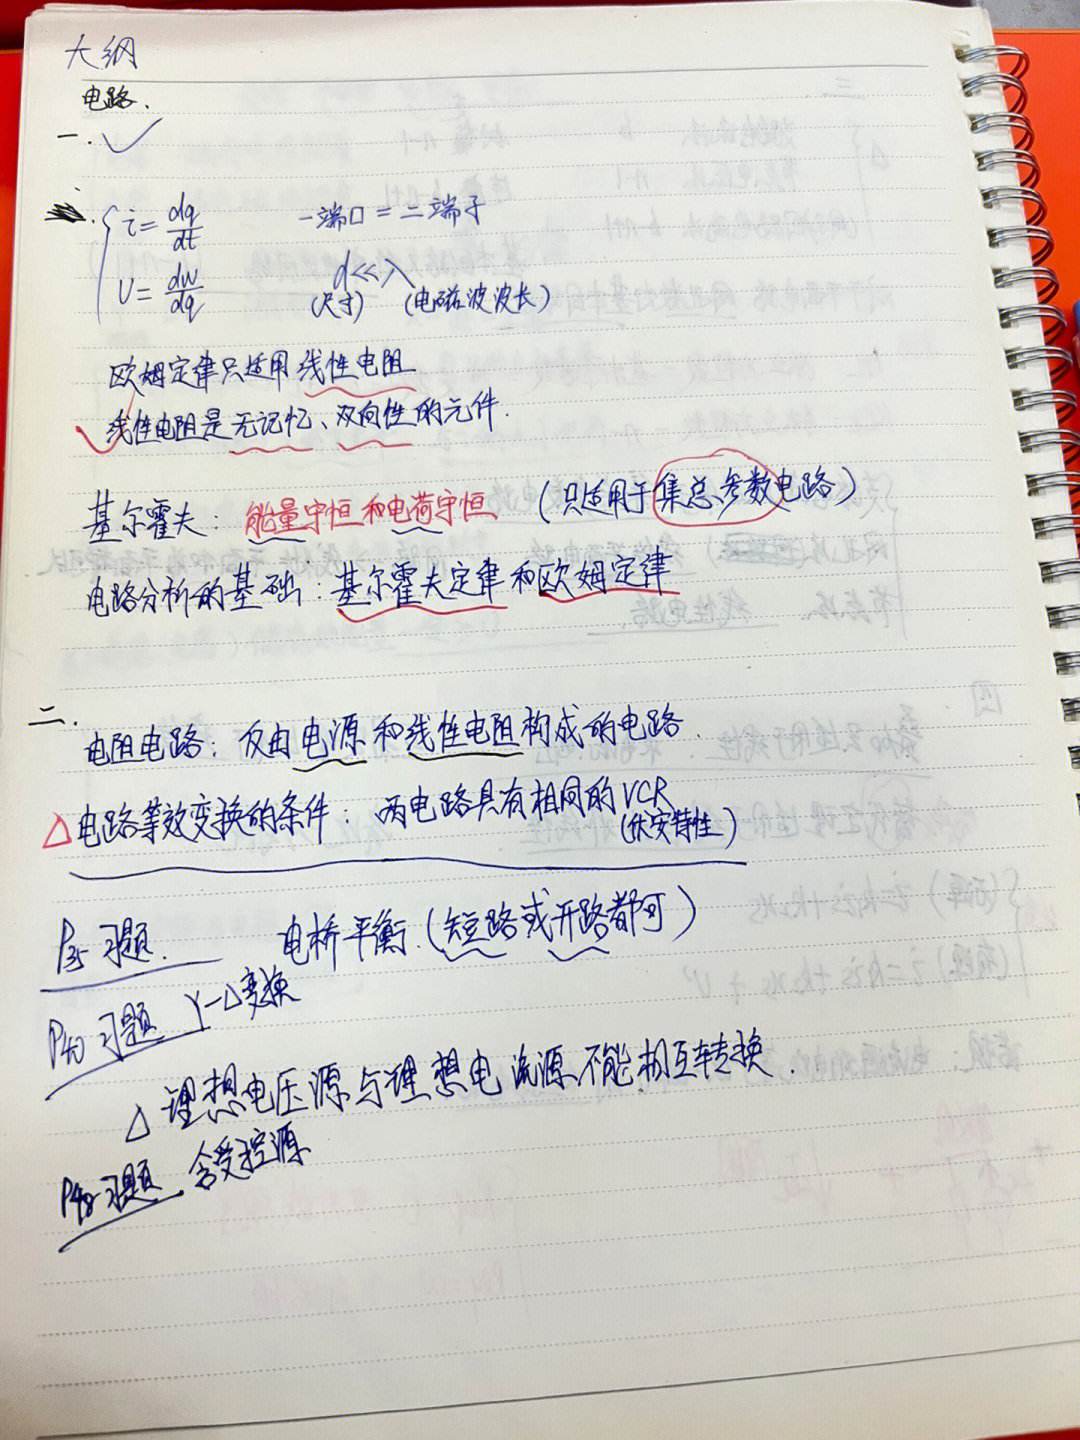 大纲
电路.
一. ✓
i = dq/dt 一端口 = 二端子
U = dw/dq d<<λ
(尺寸) (电磁波波长)
欧姆定律只适用线性电阻
线性电阻是无记忆、双向性的元件.
基尔霍夫: 能量守恒和电荷守恒 (只适用于集总参数电路)
电路分析的基础: 基尔霍夫定律和欧姆定律
二.
电阻电路: 仅由电源和线性电阻构成的电路.
△电路等效变换的条件: 两电路具有相同的VCR
(伏安特性)
习题. 电桥平衡.(短路或开路都可)
P40 习题 Y-△变换
△ 理想电压源与理想电流源不能相互转换.
习题 含受控源